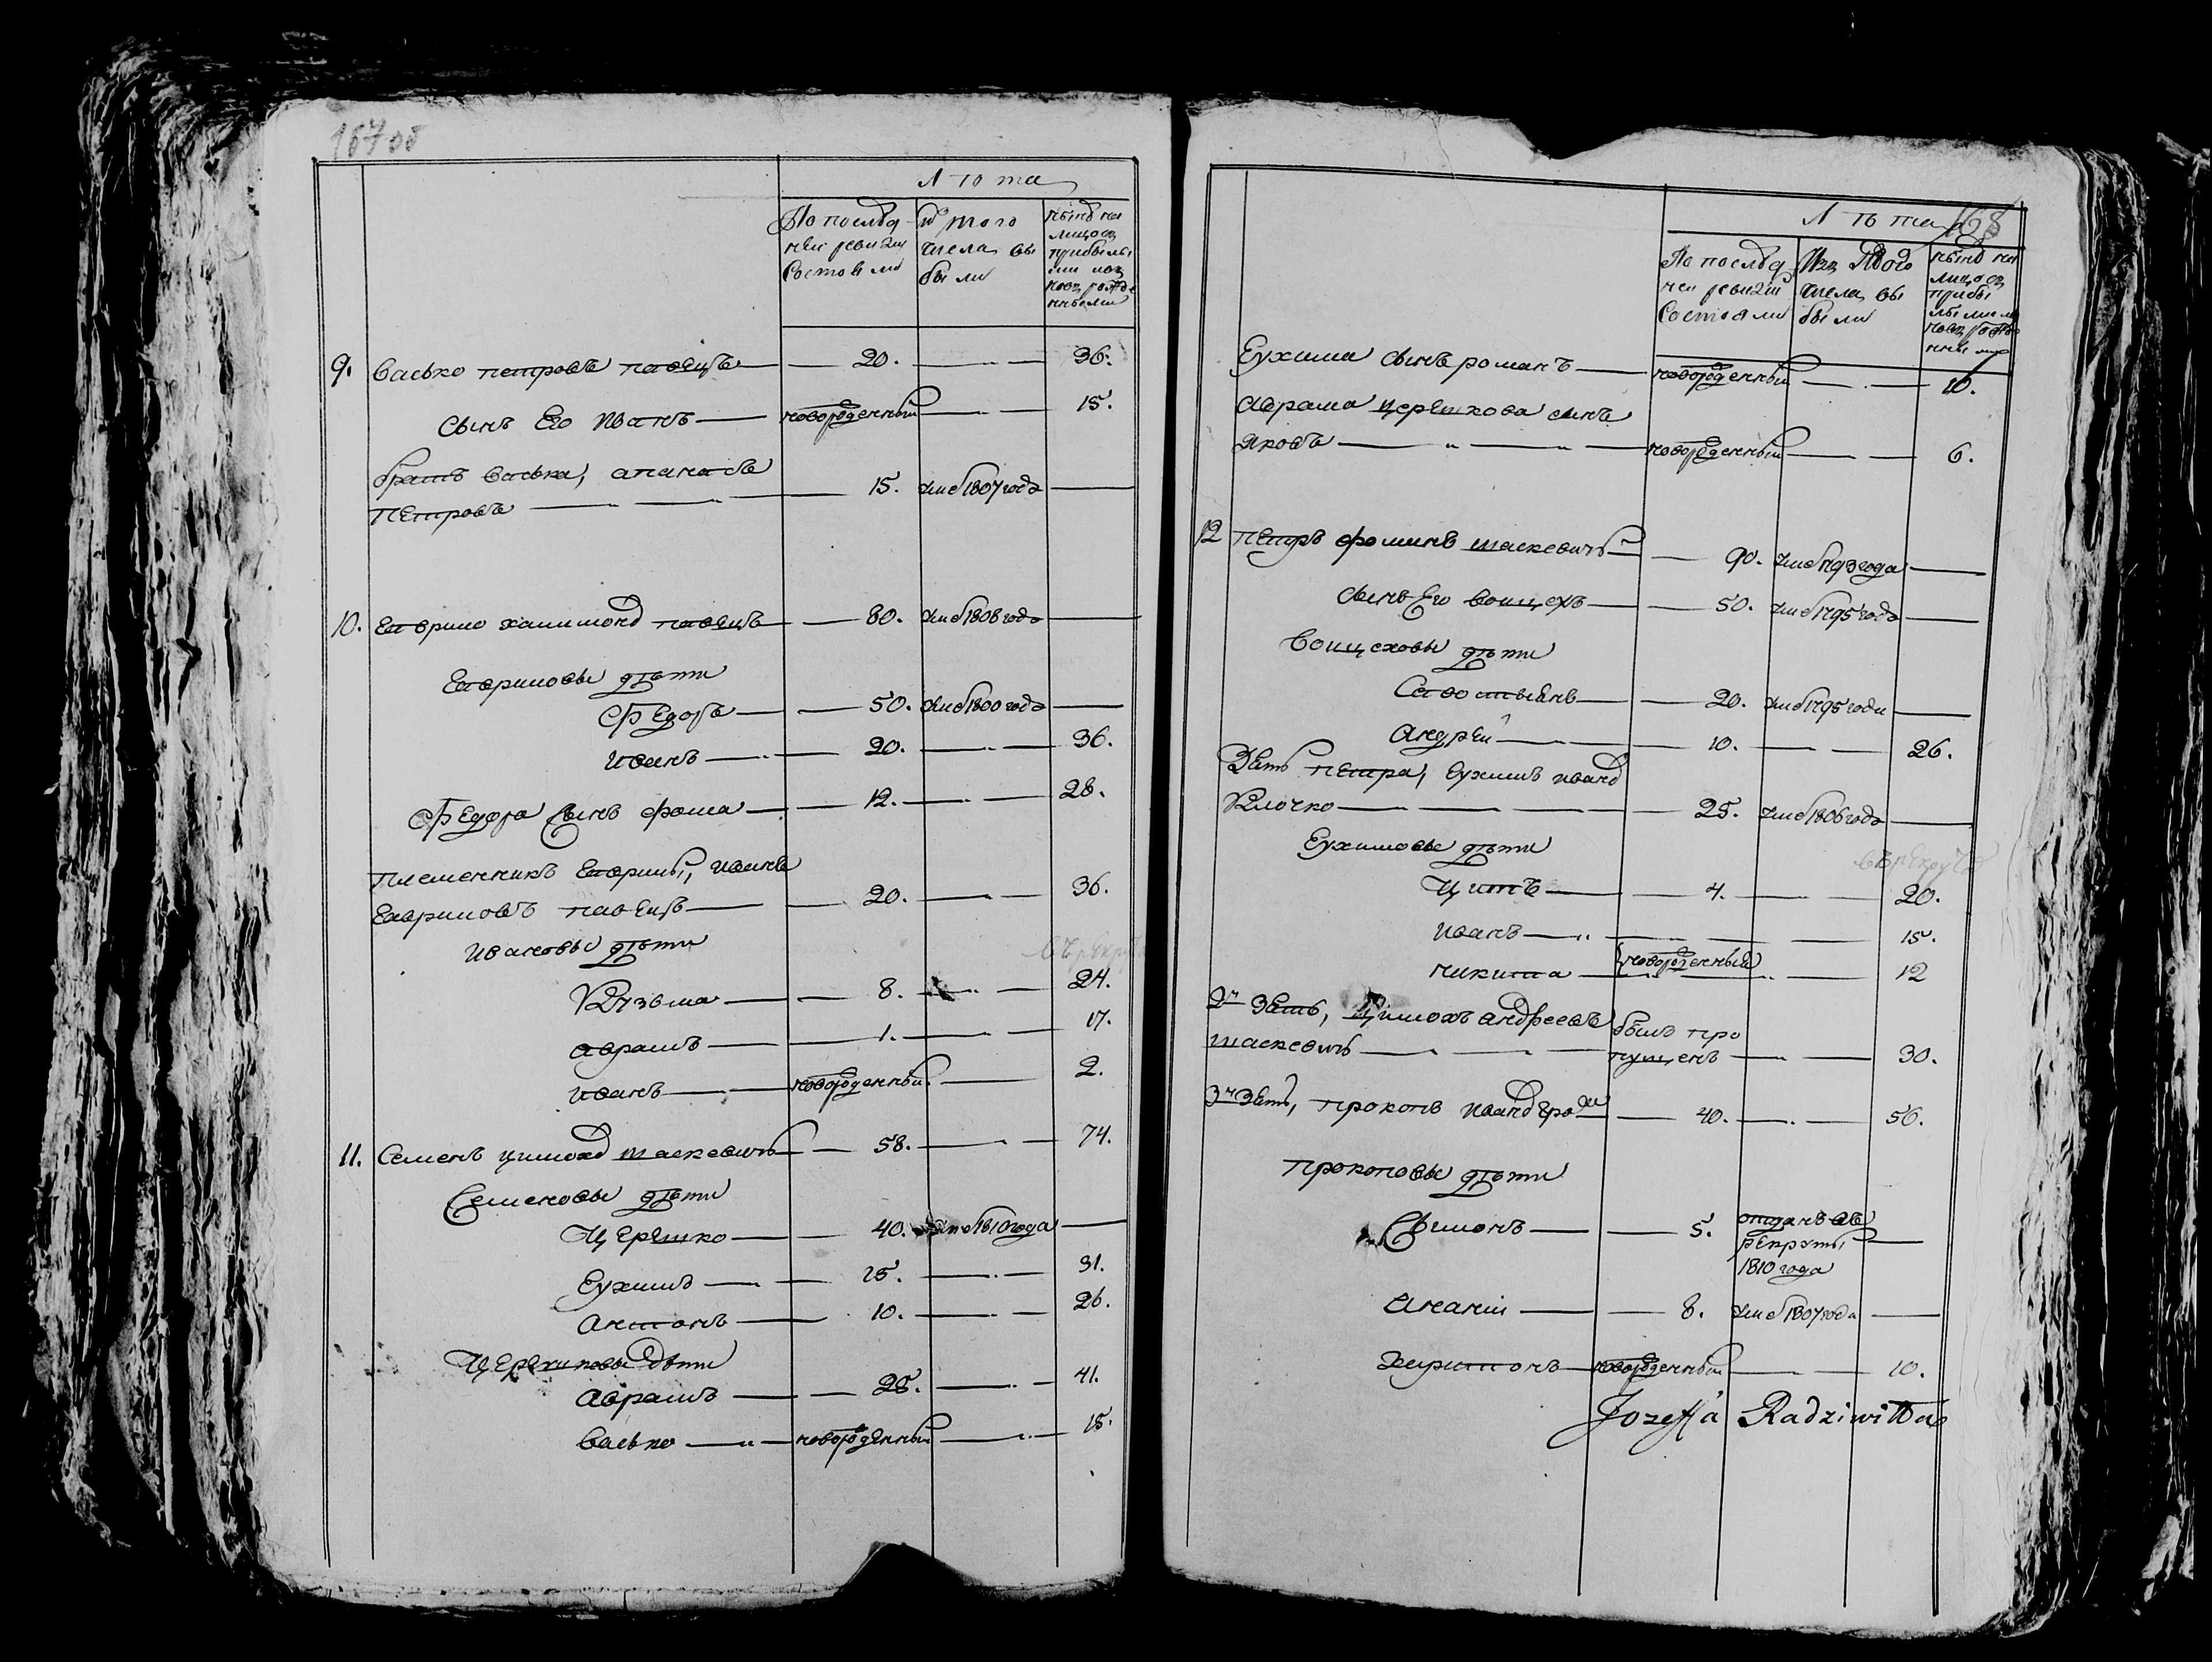 167об
Лѣта
По послѣд
ней ревизии
состояли
Изъ того
числа вы
были
Нынѣ на
лицо съ
прибылы
ми и въ
новь рожде
нными
9. Васько Петровъ Павецъ — 20. — 36.
Сынъ Его Иванъ — новорожденный — 15.
братъ Васька, Апанасъ
Петровъ — 15. умеръ 1807 года —
10. Гаврило Халимонд Павецъ — 80. умеръ 1808 года —
Гавриловы дѣти
Федоръ — 50. умеръ 1800 года —
Иванъ — 20. — 36.
Федора Сынъ Фома — 12. — 28.
Племенникъ Гаврилы, Иванъ
Гавриловъ Павецъ — 20. — 36.
Ивановы дѣти
въ рекру
Кузьма — 8. — 24.
Аврамъ — 1. — 17.
Иванъ — новорожденный — 2.
11. Семенъ Цимохд Шаскевичъ — 58. — 74.
Семеновы дѣти
Церешко — 40. умеръ 1810 года —
Еухимъ — 15. — 31.
Антонъ — 10. — 26.
Церешковы дѣти
Аврамъ — 25. — 41.
Васько — новорожденный — 15.
168
Лѣта
По послѣд
ней ревизии
Состояли
Изъ того
числа вы
были
Нынѣ на
лицо съ
прибы
лыми и
новь рожде
нными
Еухима сынъ Романъ — новорожденный — 10.
Аврама Церешкова сынъ
Яковъ — новорожденный — 6.
12 Петръ Фоминъ Шаскевичъ — 90. умеръ 1793 года —
Сынъ Его Воицехъ — 50. умеръ 1795 года —
Воицеховы дѣти
Савостьянъ — 20. умеръ 1795 года —
Андрей — 10. — 26.
Зять Петра, Еухимъ Иванд
Клочко — 25. умеръ 1806 года —
Еухимовы дѣти
въ рекруты
Цитъ — 4. — 20.
Иванъ — 15.
новорожденный
Никита — 12
2й Зять, Цимохъ Андреевъ былъ про
Шаскевичъ — пущенъ — 30.
3й Зять, Прокопъ Иванд — 40. — 56.
Прокоповы дѣти
Сымонъ — 5. отданъ въ
рекруты
1810 года
Ананiи — 8. умеръ 1807 года —
Харитонъ — новорожденный — 10.
Jozeffa Radziwiłłowa